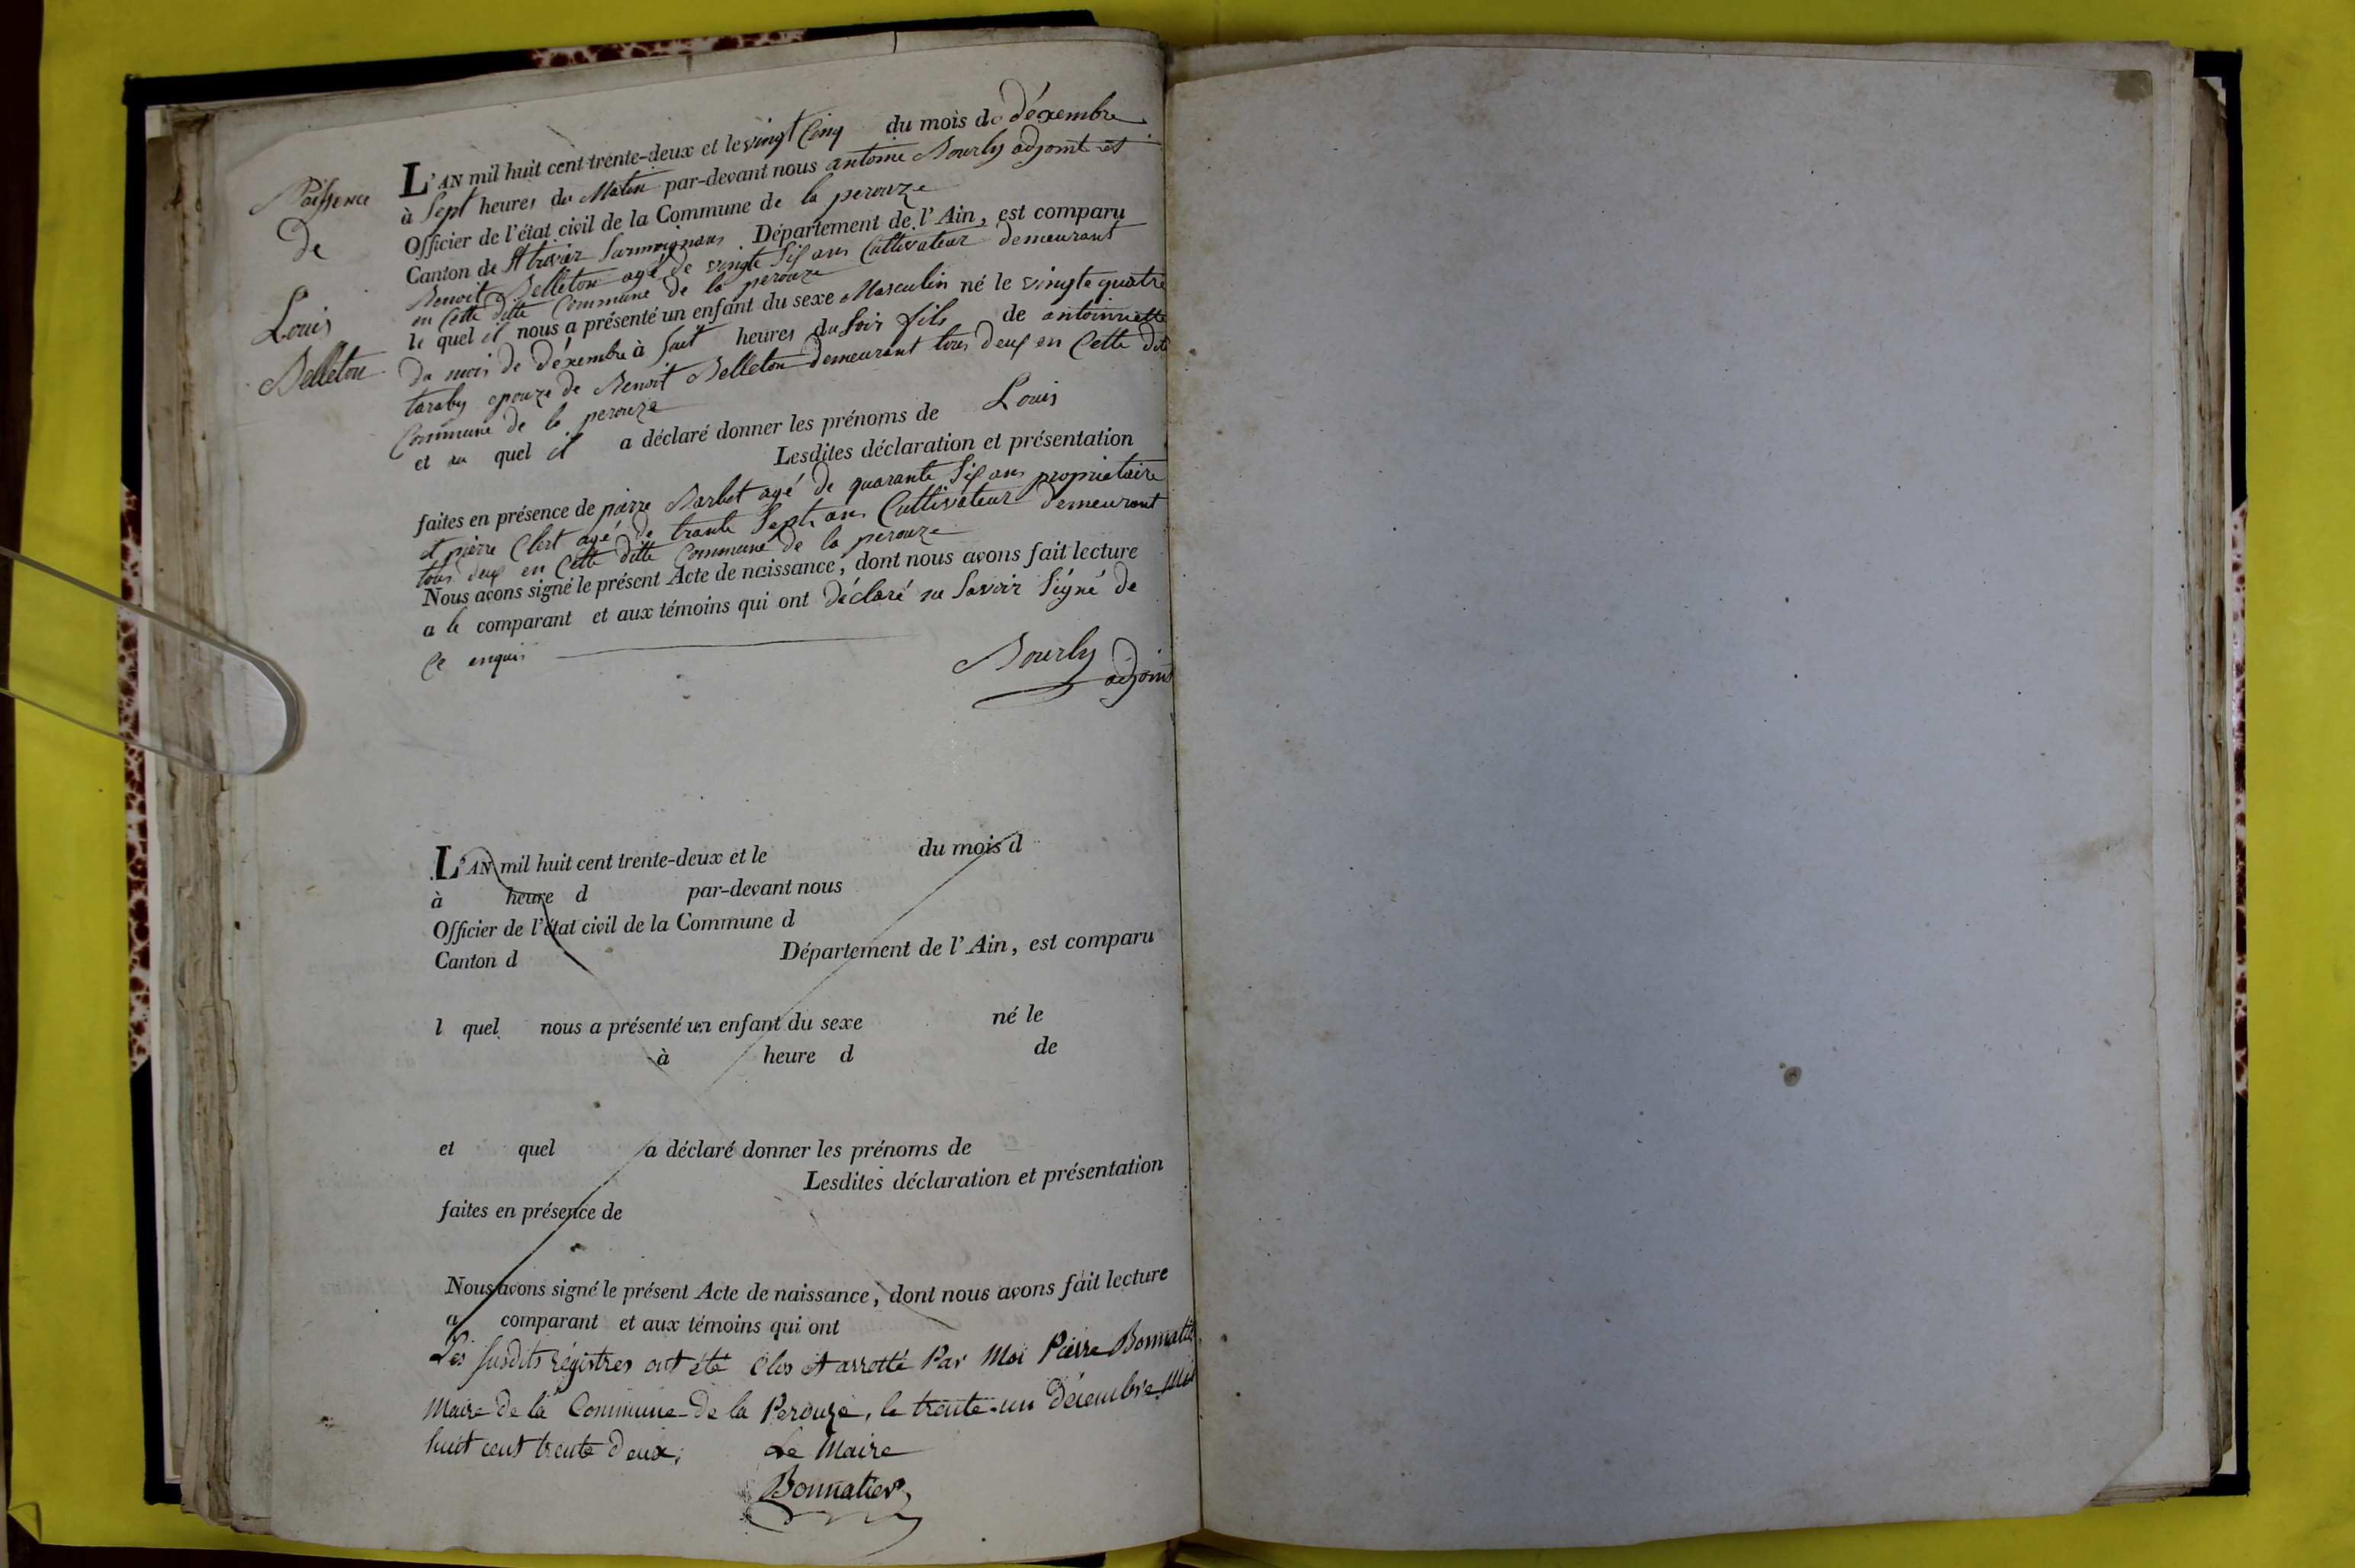 Naissence
de
Louis
Belleton
L'AN mil huit cent trente-deux et le vingt Cinq du mois de déxembre
à Sept heures du Matin par-devant nous antoine Bourly adjoint et
Officier de l'état civil de la Commune de la perouze
Canton de St trivier Surmoignans Département de l'Ain, est comparu
Benoit Belleton agé de vingte Six ans Cultivateur demeurant
en Cette ditte Commune de la perouze
le quel il nous a présenté un enfant du sexe Masculin né le vingte quatre
du mois de déxembre à heures du Soir fils de antoinette
taraby epouze de Benoit Belleton demeurant tous deux en Cette dite
Commune de la perouze
et au quel il a déclaré donner les prénoms de Louis
Lesdites déclaration et présentation
faites en présence de pierre Barbet agé de quarante Six ans proprietaire
et pierre Clert agé de trante Sept ans Cultivateur demeurant
tous deux en Cette ditte Commune de la perouze
Nous avons signé le présent Acte de naissance, dont nous avons fait lecture
a le comparant et aux témoins qui ont déclaré ne Savoir Signé de
Ce enquis
Bourly
adjoint
L'AN mil huit cent trente-deux et le du mois d
à heure d par-devant nous
Officier de l'état civil de la Commune d
Canton d Département de l'Ain, est comparu
l quel nous a présenté un enfant du sexe né le
à heure d de
et quel a déclaré donner les prénoms de
Lesdites déclaration et présentation
faites en présence de
Nous avons signé le présent Acte de naissance, dont nous avons fait lecture
a comparant et aux témoins qui ont
Les susdits régistres ont été clos et arretté Par Moi Pierre Bonnatier
Maire de la Commune de la Perouze, le trente-un décembre Mil
huit cent trente deux; Le Maire
Bonnatier